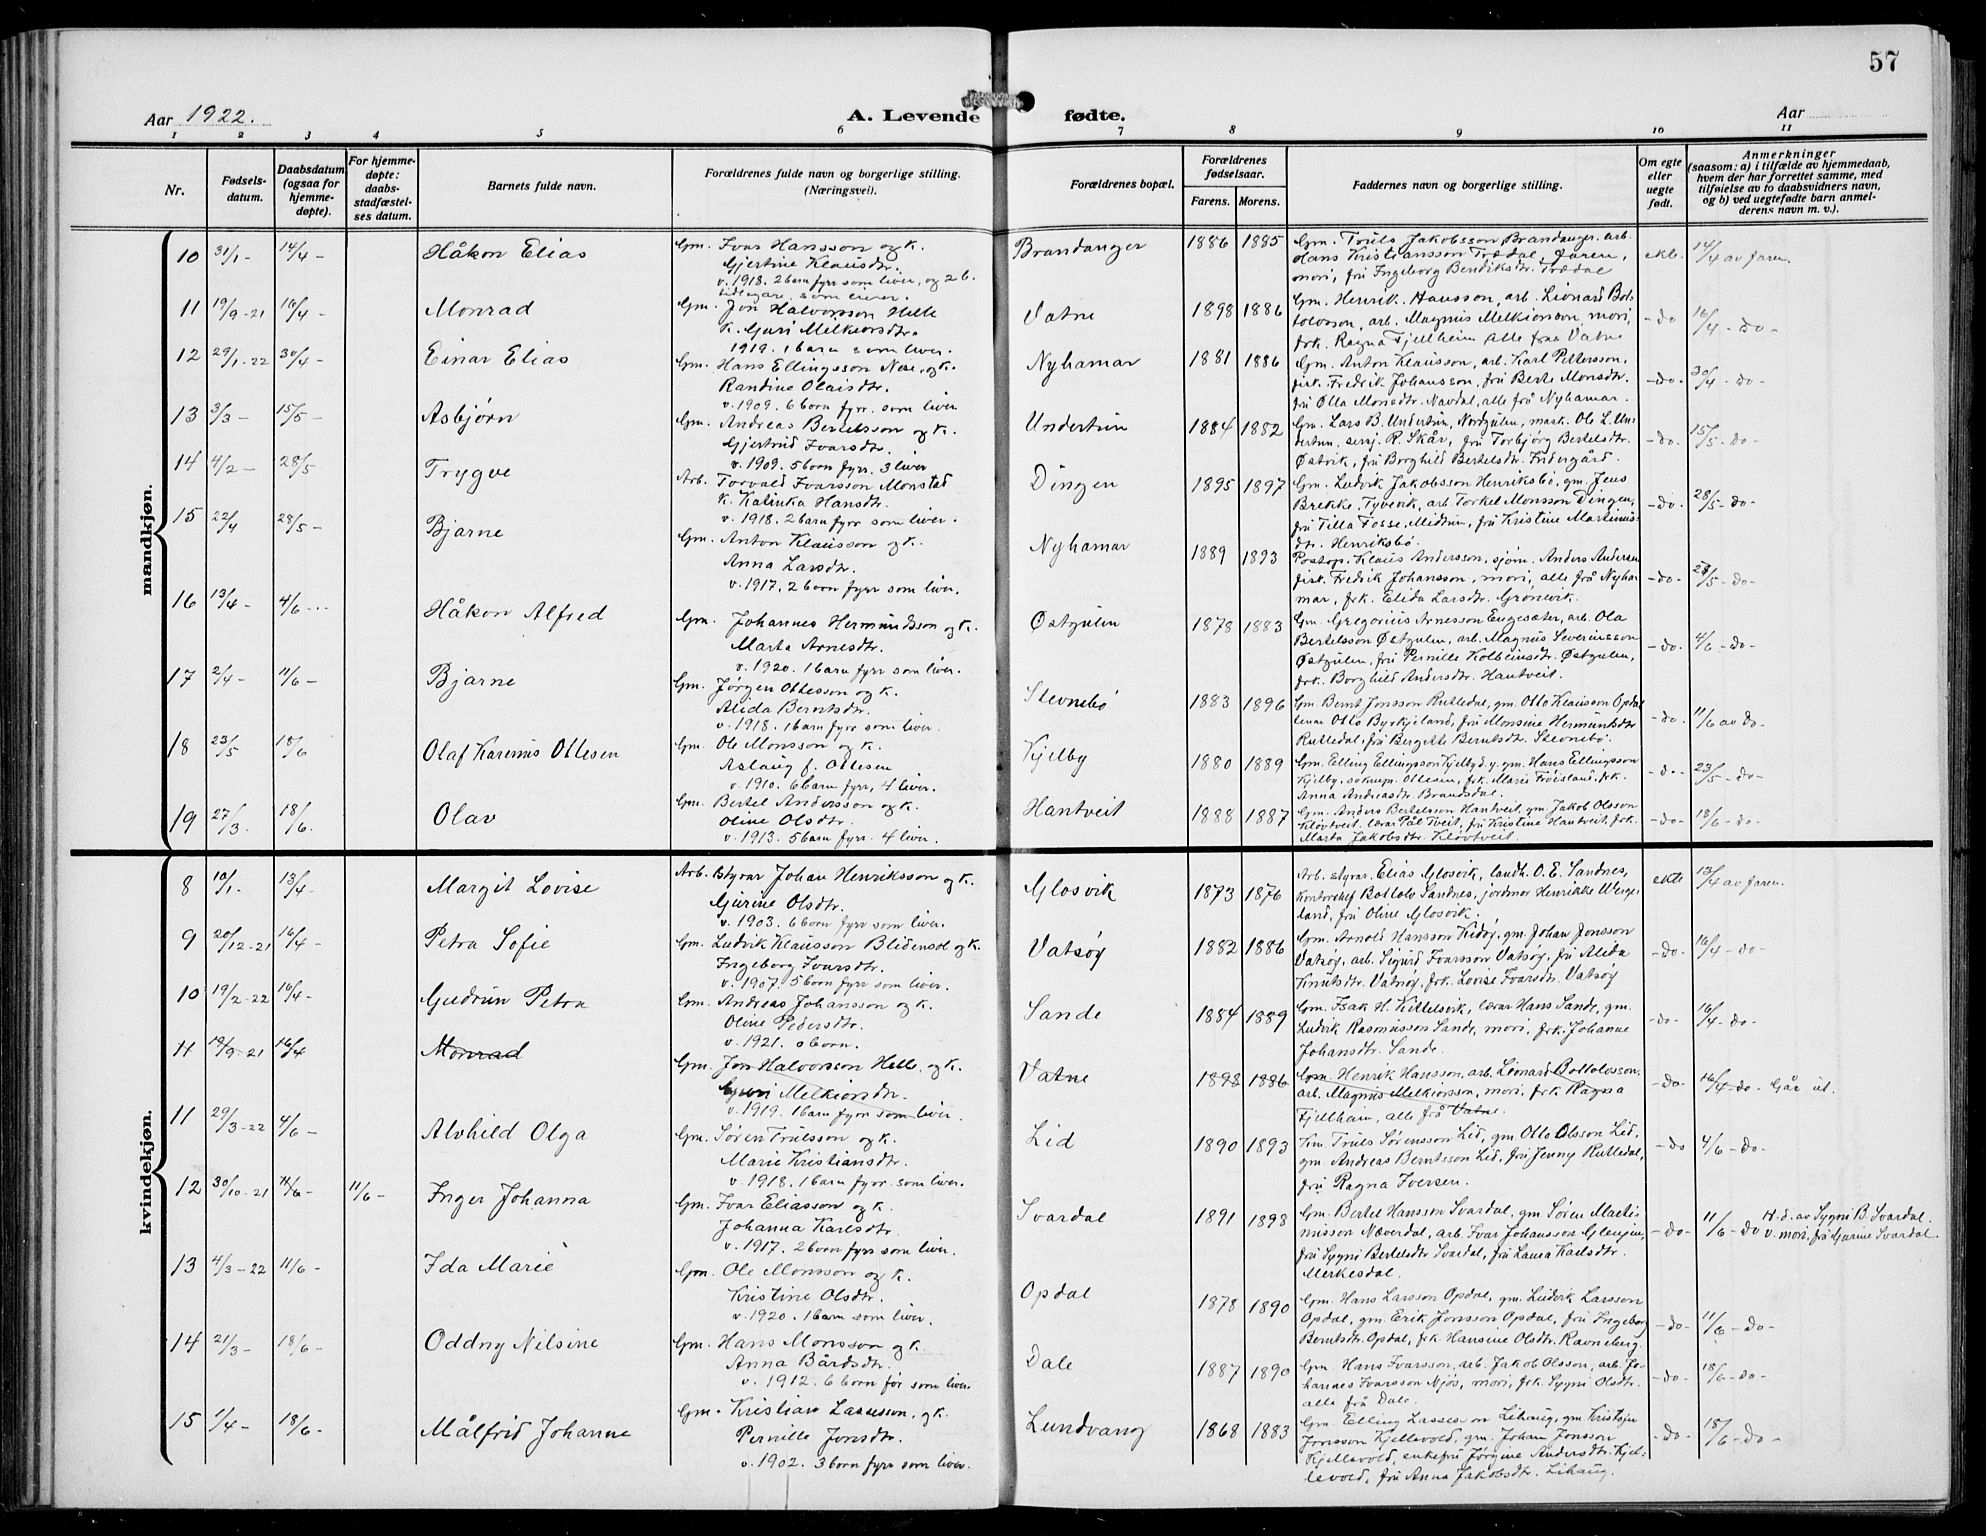 57
Aar 1922.
A. Levende fødte.
Aar
1 2 3 4 5 6 7 8 9 10 11
Nr.
Fødsels-
datum.
Daabsdatum
(ogsaa for
hjemme-
døpte).
For hjemme-
døpte:
daabs-
stadfæstel-
ses datum.
Barnets fulde navn.
Forældrenes fulde navn og borgerlige stilling.
(Næringsvei).
Forældrenes bopæl.
Forældrenes
fødselsaar.
Farens. Morens.
Faddernes navn og borgerlige stilling.
Om egte
eller
uegte
født.
Anmerkninger
(saasom: a) i tilfælde av hjemmedaab,
hvem der har forrettet samme, med
tilføielse av to daabsvidners navn,
og b) ved uegtefødte barn anmel-
derens navn m. v.).
mandkjøn.
10 31/1- 14/4- Håkon Elias
Gm. Ivar Hansson og k.
Gjertine Klausdtr.
v. 1918. 2 barn fyrr som liver, og 2 b.
tidlegar som liver.
Brandanger 1886 1885
Gm. Truls Jakobsson Brandanger, arb.
Hans Kristiansson Trædal, faren,
mori, frú Ingeborg Bendiksdtr. Trædal
ekte. 14/4 av faren.
11 19/9-21 16/4- Monrad
Gm. Jon Halvorsson Helle
k. Guri Melkiorsdtr.
1919. 1 barn som liver.
Vatne 1898 1886
Gm. Henrik Hansson, arb. Lionard Bot-
tolvsson, arb. Magnus Melkiorsson, mori,
frk. Ragna Fjellheim alle fraa Vatne
-do 16/4-do-
12 29/1-22 30/4- Einar Elias
Gm. Hans Ellingsson Nese, og k.
Randine Olaisdtr.
v. 1909. 6 born fyrr. som liver
Nyhamar 1881 1886
Gm. Anton Klausson, arb. Karl Pettersson,
fisk. Fredrik Johansson, frú Berte Monsdtr.
frú Olla Monsdtr. Navdal, alle frå Nyhamar.
-do. 30/4-do-
13 3/3- 15/5- Asbjørn
Gm. Andreas Bertelsson og k.
Gjertrud Ivarsdtr.
v. 1909. 5 born fyrr. 3 liver
Undertun 1884 1882
Gm. Lars B. Undertun, Nordgulen, mask. Ole L. Un-
dertun, sersj. R. Skår, frú Torbjørg Bertelsdtr.
Østvik, frú Borghild Bertelsdtr. Fridergård.
-do. 15/5-do-
14 4/2- 28/5- Trygve
Arb. Torvald Ivarsson Monstad
k. Katinka Hansdtr.
v. 1918. 2 barn fyrr som liver.
Dingen 1895 1897
Gm. Ludvik Jakobsson Henriksbø, gm. Jens
Brekke, Tyvevik, arb. Torkel Monsson Dingen,
frú Tilla Fosse, Midtun, frú Kristine Martinus-
dtr. Henriksbø.
-do. 28/5-do-
15 22/4 28/5- Bjarne
Gm. Anton Klausson og k.
Anna Larsdtr.
v. 1917. 2 born fyrr som liver.
Nyhamar 1889 1893
Postop. Klaus Andersson, sjøm. Anders Andersen
fisk. Fredrik Johansson, mori, alle frå Nyha-
mar, frk. Elida Larsdtr. Grønevik.
-do- 28/5-do-
16 13/4- 4/6- Håkon Alfred
Gm. Johannes Hermundsson og k.
Marta Arnesdtr.
v. 1920. 1 barn fyrr som liver.
Østgulen 1878 1883
Gm. Gregorius Arnesson Engesæter, arb. Ola
Bertelsson Østgulen, arb. Magnus Severinsson
Østgulen, frú Pernille Kolbeinsdtr. Østgulen,
frk. Borghild Andersdtr. Hantveit.
-do- 4/6-do-
17 2/4- 11/6- Bjarne
Gm. Jørgen Ottesson og k.
Alida Berntsdtr.
v. 1918. 1 barn fyrr som liver.
Stevnebø 1883 1896
Gm. Bernt Jonsson Rutledal, gm. Otto Klausson Opdal
lærar Otto Byrkjeland, frú Monsine Hermundsdtr
Rutledal, frú Bergitte Berntsdtr. Stevnebø.
-do. 11/6 av do-
18 23/5 18/6 Olaf Karenus Ottesen
Gm. Ole Monsson og k.
Aslaug f. Ottesen
v. 1910. 6 barn fyrr, 4 liver.
Kjelby 1880 1889
Gm. Elling Ellingsson Kjelby d.y. gm. Hans Ellingsson
Kjelby, soknepr. Ottesen, frk. Marie Frøisland, frk.
Anna Andreasdtr. Brandsdal.
-do- 23/5-do-
19 27/3 18/6. Olav
Gm. Bertel Andersson og k.
Oline Olsdtr.
v. 1913. 5 barn fyrr. 4 liver.
Hantveit 1888 1887
Gm. Anders Bertelsson Hantveit, gm. Jakob Olsson
Kløvtveit, lærar Pål Tveit, frú Kristine Hantveit, frk.
Marta Jakobsdtr. Kløvtveit.
-do- 18/6-do-
kvindekjøn.
8 10/1. 13/4- Margit Lovise
Arb. styrar Johan Henriksson og k.
Gurine Olsdtr.
v. 1903. 6 born fyrr som liver.
Glosvik 1873 1876
Arb. styrar. Elias Glosvik, landh. O. E. Sandnes,
kontorchef Bottolv Sandnes, jordmor Henrikke Werge-
land, frú Oline Glosvik.
ekte 13/4 av faren.
9 20/12-21 16/4- Petra Sofie
Gm. Ludvik Klausson Blidensol og k.
Ingeborg Ivarsdtr.
v. 1907. 5 born fyrr som liver.
Vatsøy 1882 1886
Gm. Arnold Hansson Kidøy, gm. Johan Jonsson
Vatsøy, arb. Sigurd Ivarsson Vatsøy, frú Alida
Knutsdtr. Vatsøy, frk. Lovise Ivarsdtr. Vatsøy
-do- 16/4-do-
10 19/2-22 16/4- Gudrun Petra
Gm. Andreas Johansson og k.
Oline Pedersdtr.
v. 1921. 0 born.
Sande 1884 1889
Gm. Isak H. Kittelsvik, lærar Hans Sande, gm.
Ludvik Rasmusson Sande, mori, frk. Johanne
Johansdtr. Sande.
-do- 16/4-do-
11 19/9-21 16/4 Monrad
Gm. Jon Halvorsson Helle, og k.
Guri Melkiorsdtr.
v. 1919. 1 barn fyrr som liver.
Vatne 1898 1886
Gm. Henrik Hansson, arb. Lionard Bottolvsson,
arb. Magnus Melkiorsson, mori, frk Ragna
Fjellheim, alle frå Vatne.
-do 16/4-do- Går ut.
11 29/3-22 4/6- Alvhild Olga
Gm. Søren Trulsson og k.
Marie Kristiansdtr.
v. 1918. 1 barn fyrr. som liver.
Lid 1890 1893
Km. Truls Sørensson Lid, gm. Otto Olsson Lid,
gm. Andreas Berntsson Lid, frú Jenny Rutledal,
frú Ragna Iversen.
-do 4/6-do-
12 30/10-21 11/6- 11/6- Inger Johanna
Gm. Ivar Eliasson og k.
Johanna Karlsdtr.
v. 1917. 2 born fyrr som liver.
Svardal 1891 1898
Gm. Bertel Hansson Svardal, gm Søren Marti-
nusson Næverdal, arb Ivar Johansson Glenjen,
frú Sygni Bertelsdtr Svardal, frú Laura Karlsdtr.
Merkesdal.
-do- 11/6-do H. d. av Sygni B. Svardal.
v. mori, frú Gurine Svardal.
13 4/3-22 11/6- Ida Marie
Gm. Ole Monsson og k.
Kristine Olsdtr.
v. 1920. 1 barn som liver.
Opdal 1878 1890
Gm. Hans Larsson Opdal, gm. Ludvik Larsson
Opdal, gm. Erik Jonsson Opdal, frú Ingeborg
Berntsdtr. Opdal, frk Hansine Olsdtr. Ravneberg.
-do- 11/6-do-
14 21/3- 18/6- Oddny Nilsine
Gm. Hans Monsson og k.
Anna Bårdsdtr.
v. 1912. 6 born før som liver.
Dale 1887 1890
Gm. Hans Ivarsson, arb. Jakob Olsson, arb. Jo-
hannes Ivarsson Njøs, mori, frk. Sygni Olsdtr.
alle frå Dale.
-do- 18/6-do-
15 1/4- 18/6- Målfrid Johanne
Gm. Kristian Lassesson, og k.
Pernille Jonsdtr.
v. 1902. 3 born fyrr som liver.
Lundvang 1868 1883
Gm. Elling Lassesson Lihaug, gm Kristen
Jonsson Kjellevold, gm. Johan Jonsson
Kjellevold, enkefrú Jørgine Andersdtr. Kjel-
levold, frú Anna Jakobsdtr. Lihaug.
-do- 18/6-do-